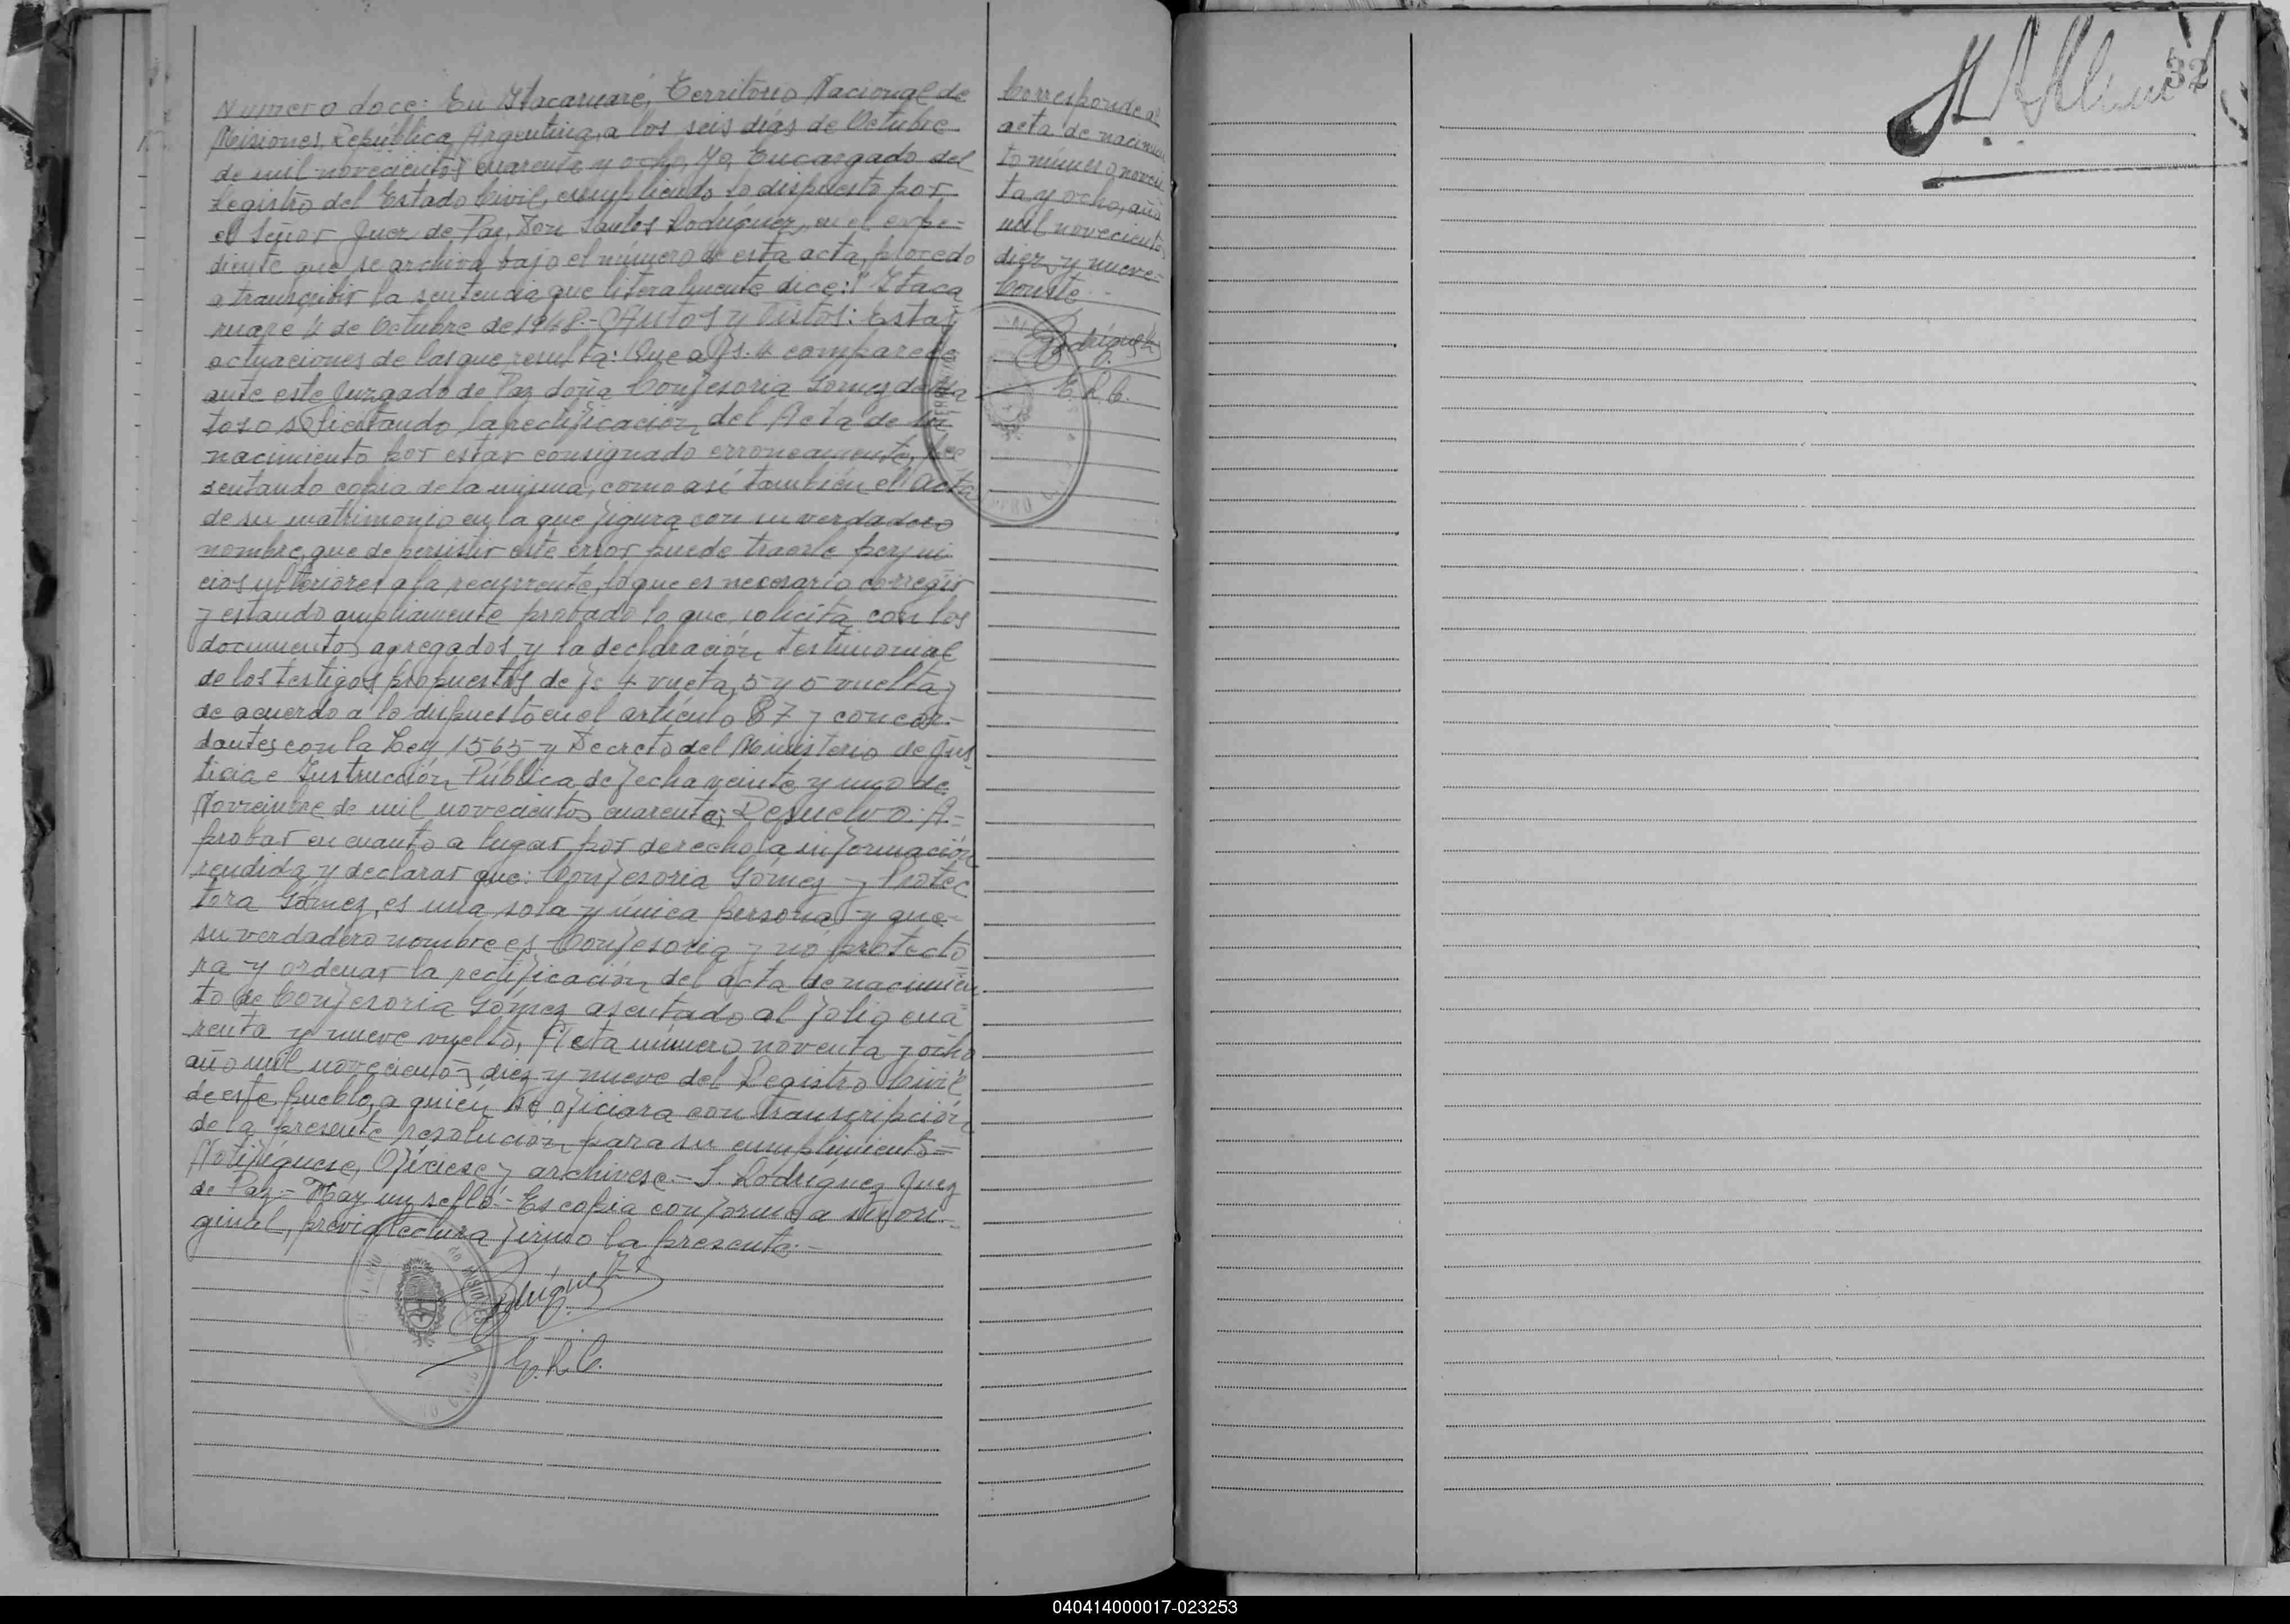 Numero doce: En Itacaruaré, Territorio Nacional de
Misiones, República Argentina, a los seis días de Octubre
de mil novecientos cuarenta y ocho, Yo, Encargado del
Registro del Estado Civil, cumpliendo lo dispuesto por
el Señor Juez de Paz, Don Santos Rodríguez, en el expe=
diente que se archiva bajo el número de esta acta, procedo
a transcribir la sentencia que literalmente dice: "Itaca
ruare 4 de Octubre de 1948.- Autos y Vistos: Estas
actuaciones de las que resulta: Que a fs. 4 comparece
ante este Juzgado de Paz doña Confesoria Gomez de Ma
toso solicitando la rectificación del Acta de su
nacimiento por estar consignado erroneamente, pre
sentando copia de la misma, como así también el acta
de su matrimonio en la que figura con su verdadero
nombre, que de persistir este error puede traerle perjui
cios ulteriores a la recurrente, lo que es necesario corregir
y estando ampliamente probado lo que solicita con los
documentos agregados y la declaración testimonial
de los testigos propuestos de fs 4 vueta, 5 y 5 vuelta y
de acuerdo a lo dispuesto en el artículo 87 y concor-
dantes con la Ley 1565 y Decreto del Ministerio de Jus
ticia e Instrucción Pública de fecha veinte y uno de
Noviembre de mil novecientos cuarenta; Resuelvo: A=
probar en cuanto a lugar por derecho la información
rendida y declarar que: Confesoria Gómez y Protec
tora Gómez, es una sola y única persona y que
su verdadero nombre es Confesoria y no protecto
ra y ordenar la rectificación del acta de nacimien
to de Confesoria Gomez asentado al folio cua
renta y nueve vuelto, Acta número noventa y ocho
año mil novecientos diez y nueve del Registro Civil
de este pueblo, a quién se oficiara con transcripción
de la presente resolución para su cumplimiento=
Notifíquese, Ofíciese y archívese.- S. Rodríguez Juez
de Paz.- Hay un sello.- Es copia conforme a su ori-
ginal, previa lectura firmo la presente.-
Rodríguez
E.R.C.
Corresponde al
acta de nacimien
to número noven
ta y ocho, año
mil novecientos
diez y nueve=
Conste
Rodríguez
E.R.C.
32
040414000017-023253